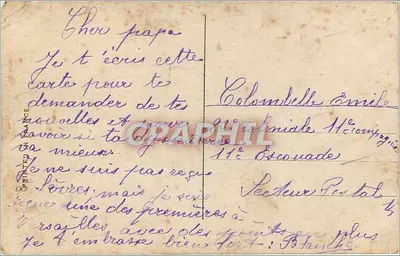 Cher papa
Je t'écris cette
carte pour te
demander de tes
nouvelles et pour
savoir si ta
va mieux.
Je ne suis pas reçue
à Sèvres, mais je suis
reçue une des premières à
Versailles, avec des points en plus
Je t'embrasse bien fort : Blanche
Colombelle Emile
coloniale 11e compagnie
11e Escouade
Secteur Postal
CPAPHIL